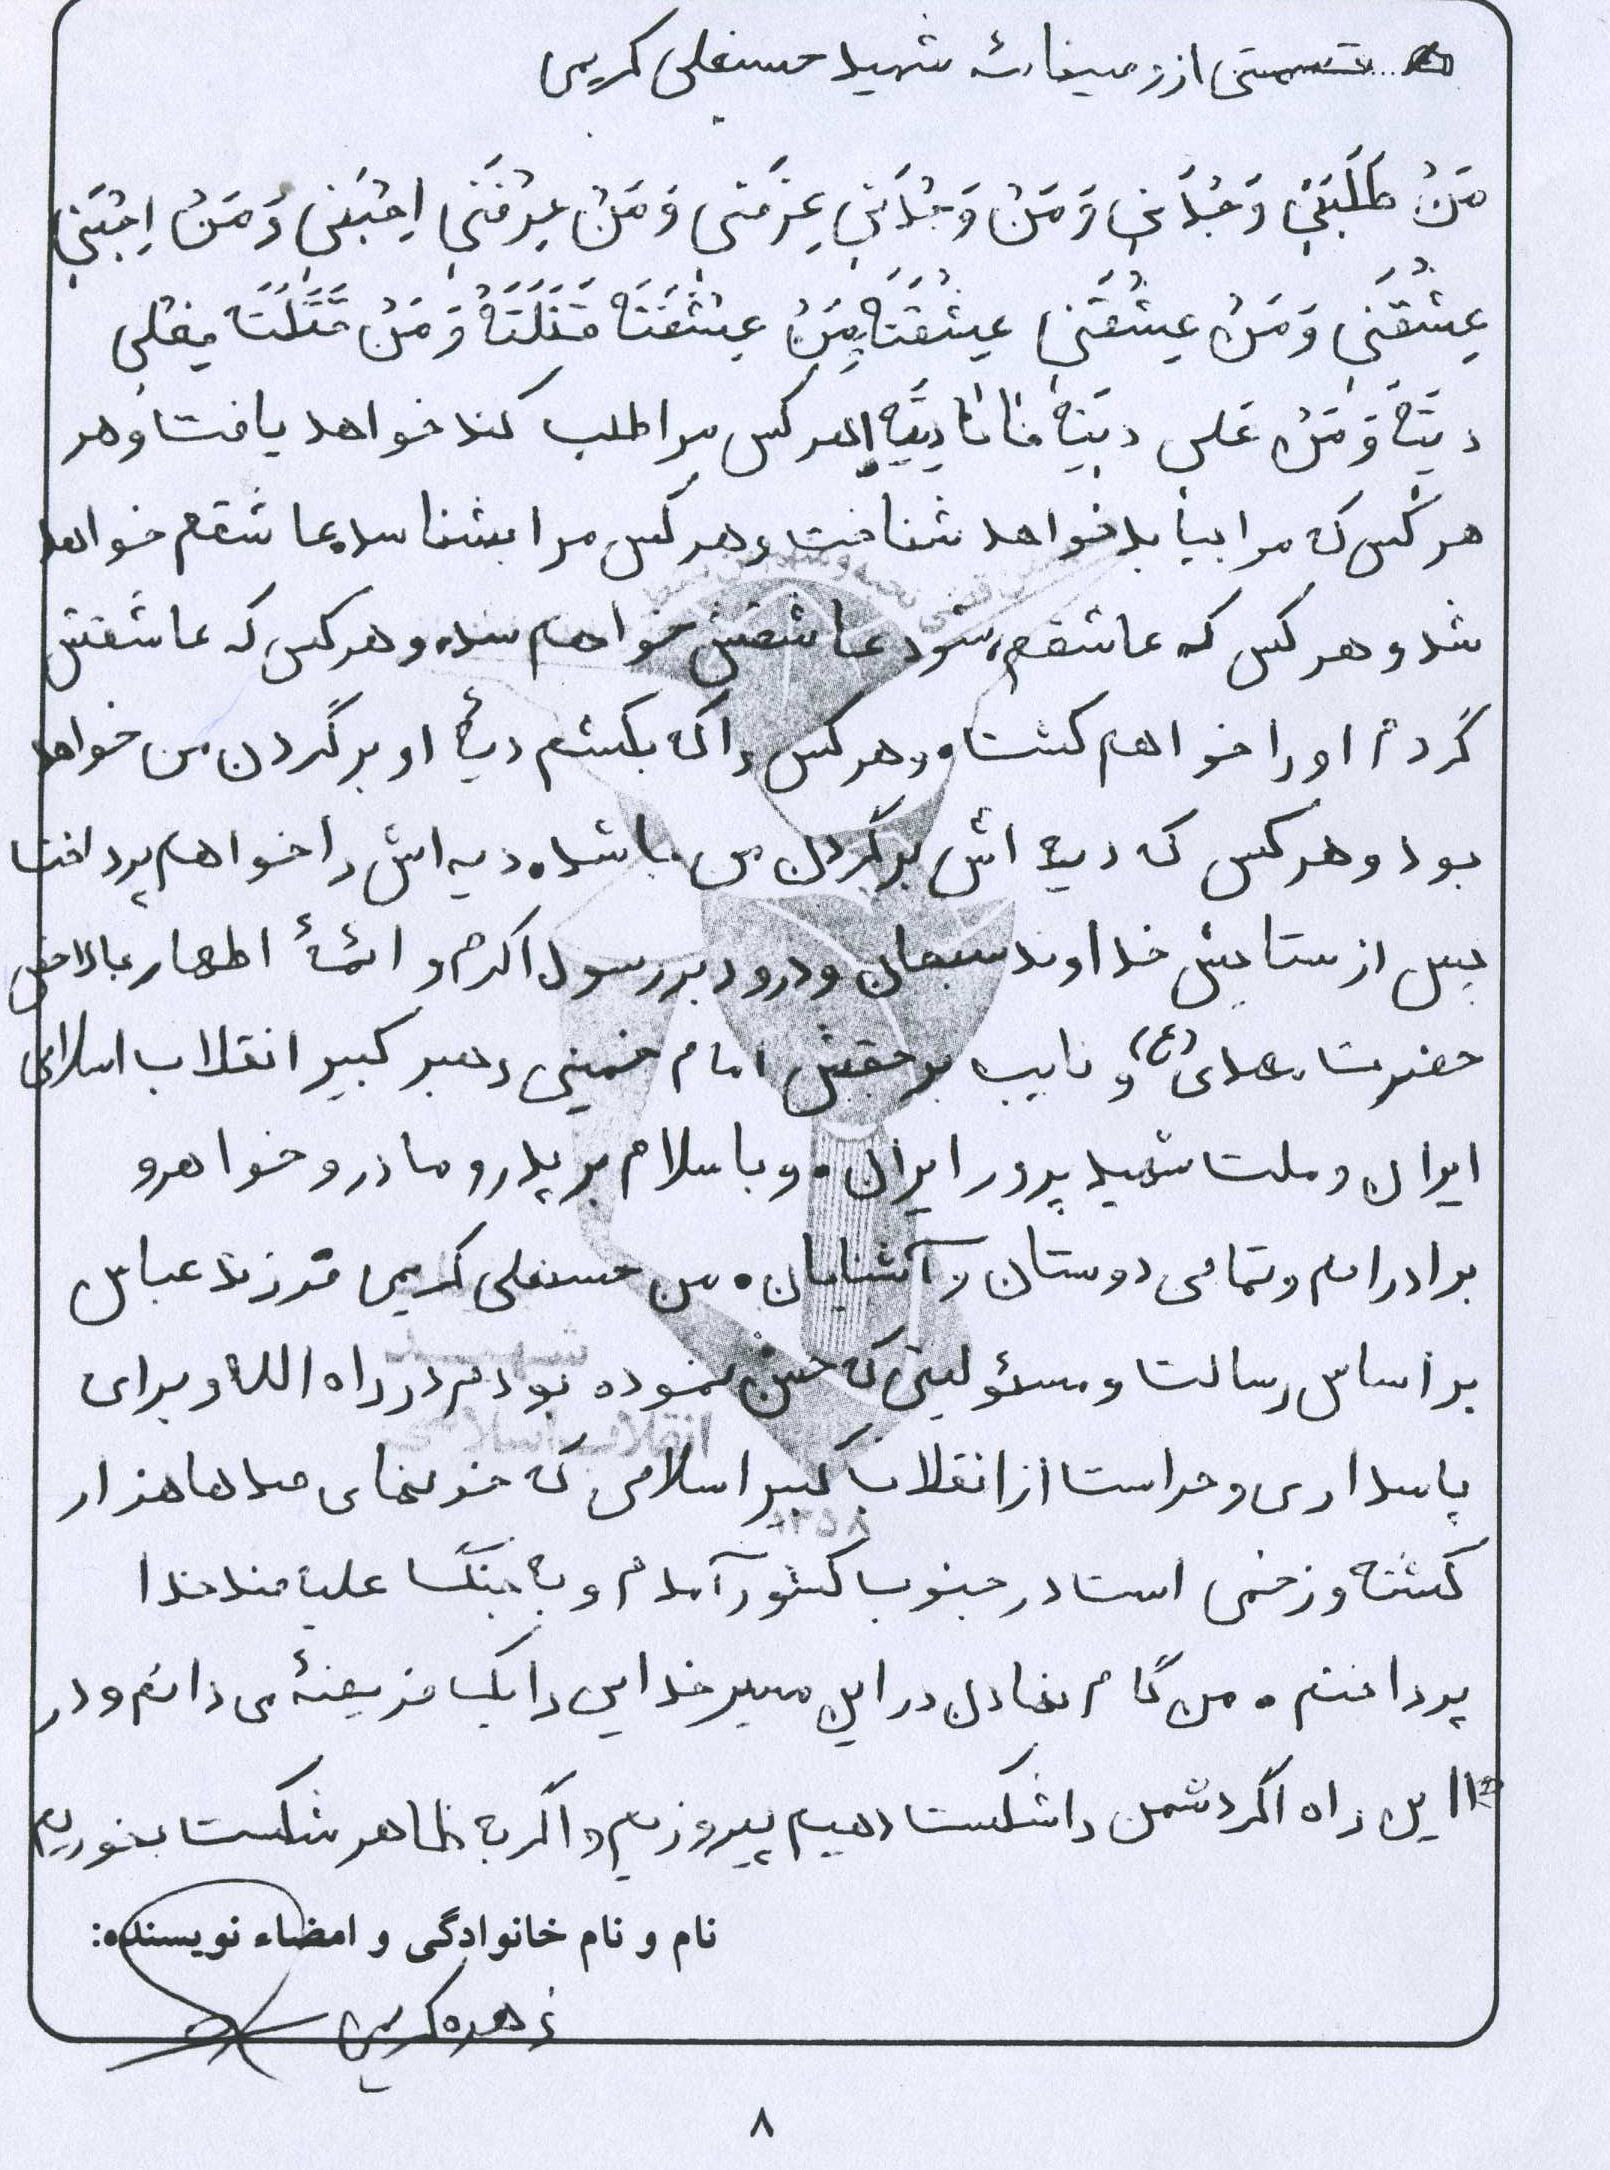 قسمتی از وصیتنامه شهید حسنعلی کریمی
مَنْ طَلَبَنِي وَجَدَنِي وَ مَنْ وَجَدَنِي عِرَفَنی وَ مَنْ عِرْفَنَی اِحْبَنَی وَ مَنْ اِحْبَنِی
عِشْقَنی وَ مَنْ عِیشْقَنی عِیشْقَتَهُ وَ مَنْ عِیشْقَتَه قَتَلَتَهُ وَ مَنْ قَتَلَتَه فِعَلی
دیَتَه وَ مَنْ عَلی دیَتِه فَانَا دِیَتِه هر کس مرا طلب کند خواهد یافت و هر
هر کس که مرا بیابد خواهد شناخت و هر کس مرا بشناسد عاشقم خواهد
شد و هر کس که عاشقم شود عاشقش خواهم شد و هر کس که عاشقش
گردم او را خواهم کشت و هر کس را که بکشم دیهٔ او بر گردن من خواهد
بود و هر کس که دیه اش بر گردن من باشد، دیه اش را خواهم پرداخت
پس از ستایش خداوند سبحان و درود بر رسول اکرم و ائمهٔ اطهار بالاخص
حضرت مهدی (ع) و نایب بر حقش امام خمینی رهبر کبیر انقلاب اسلامی
ایران و ملت شهید پرور ایران. و با سلام بر پدر و مادر و خواهر و
برادرانم و تمامی دوستان و آشنایان. من حسنعلی کریمی فرزند عباس
بر اساس رسالت و مسئولیتی که حس نموده بودم در راه الله و برای
پاسداری و حراست از انقلاب کبیر اسلامی که خونبهای صدها هزار
کشته و زخمی است در جنوب کشور آمدم و به جنگ علیه ضد خدا
پرداختم. من گام نهادن در این مسیر خدایی را یک فریضهٔ می دانم و در
این راه اگر دشمن را شکست دهیم پیروزیم و اگر به ظاهر شکست بخوریم
نام و نام خانوادگی و امضاء نویسنده:
زهره کریمی
۸
شهید
انقلاب اسلامی
۱۳۵۸